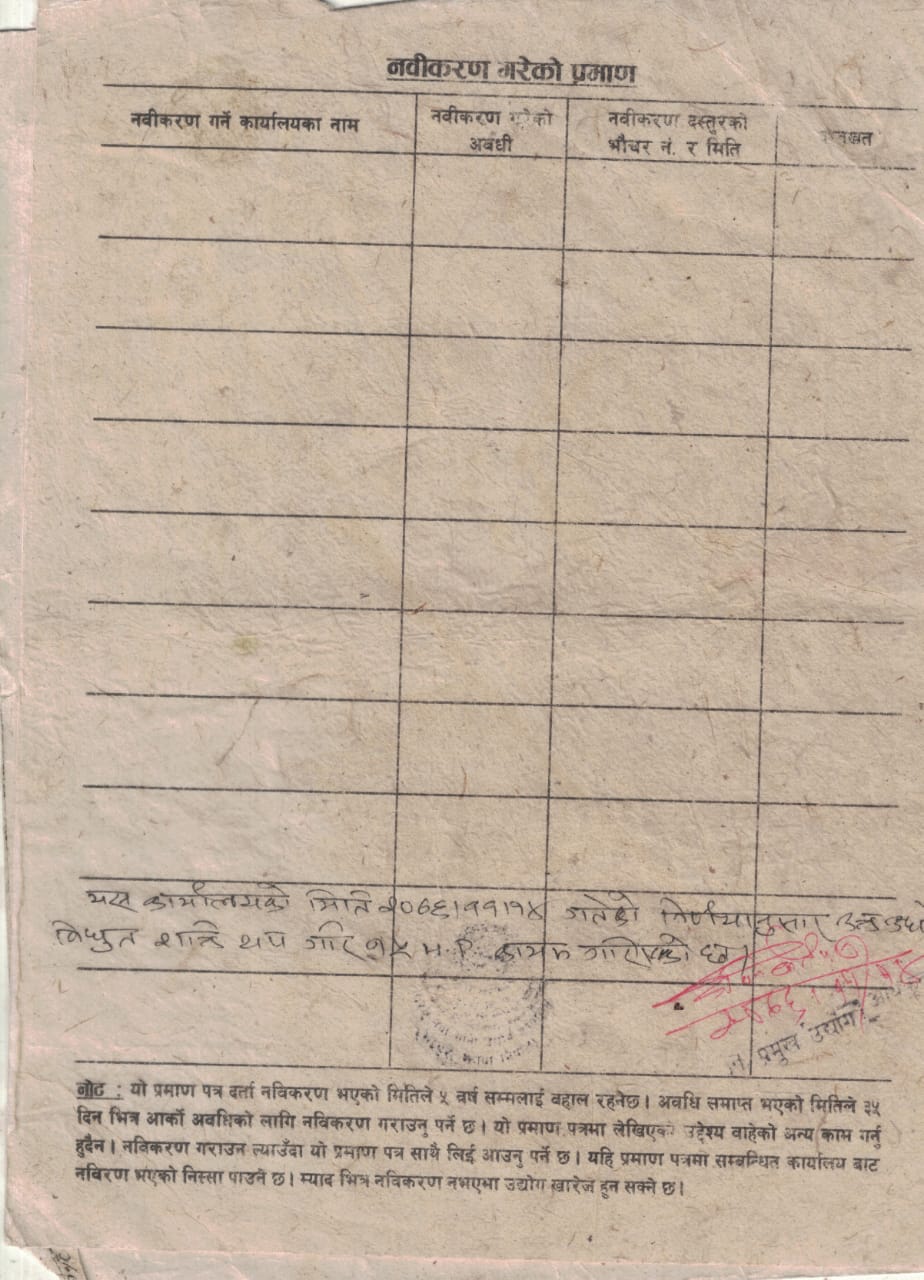 नवीकरण गरेको प्रमाण
नवीकरण गर्ने कार्यालयका नाम
नवीकरण गरेको
अवधी
नवीकरण दस्तुरको
भौचर नं. र मिति
यस कार्यालयको मिति २०६६।११।१४ गतेको निर्णयानुसार उक्त
विधुत शक्ति थप गरि १५ H.P. कायम गरिएको छ।
प्रमुख उद्योग
नोट : यो प्रमाण पत्र दर्ता नविकरण भएको मितिले ५ वर्ष सम्मलाई वहाल रहनेछ। अवधि समाप्त भएको मितिले ३५
दिन भित्र आर्को अवधिको लागि नविकरण गराउनु पर्ने छ। यो प्रमाण पत्रमा लेखिएको उद्देश्य वाहेको अन्य काम गर्नु
हुदैन। नविकरण गराउन ल्याउँदा यो प्रमाण पत्र साथै लिई आउनु पर्ने छ। यहि प्रमाण पत्रमा सम्बन्धित कार्यालय बाट
नविरण भएको निस्सा पाउने छ। म्याद भित्र नविकरण नभएमा उद्योग खारेज हुन सक्ने छ।